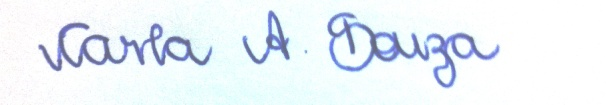 Karla A. Douza